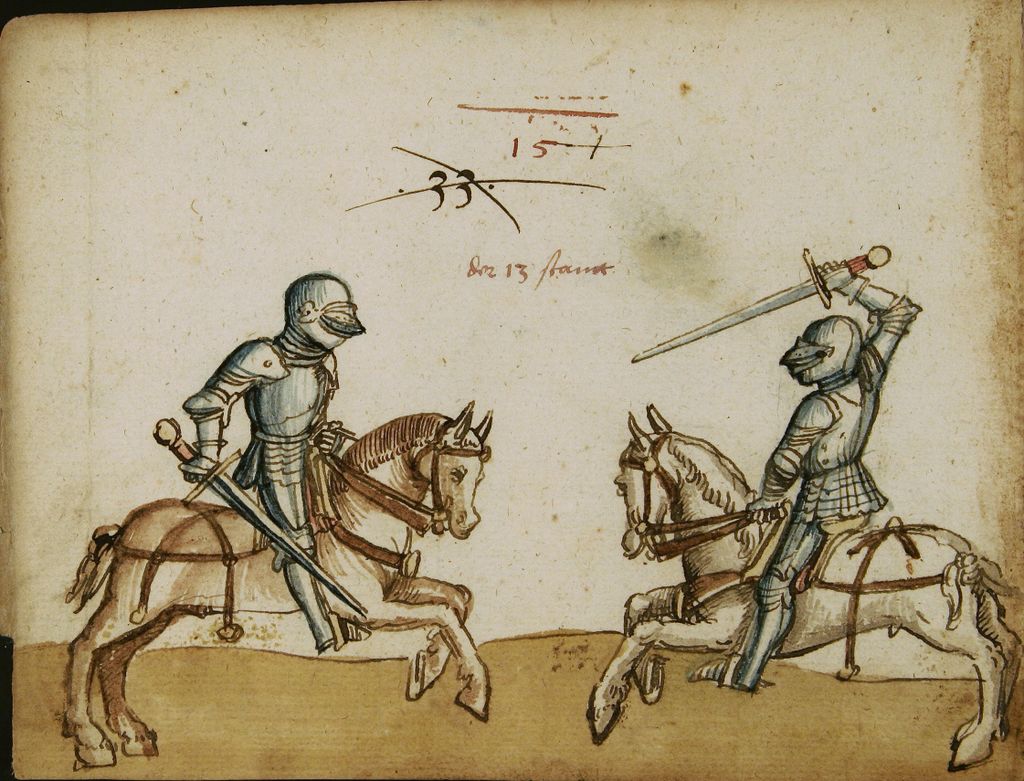 15
33
der 13 stant